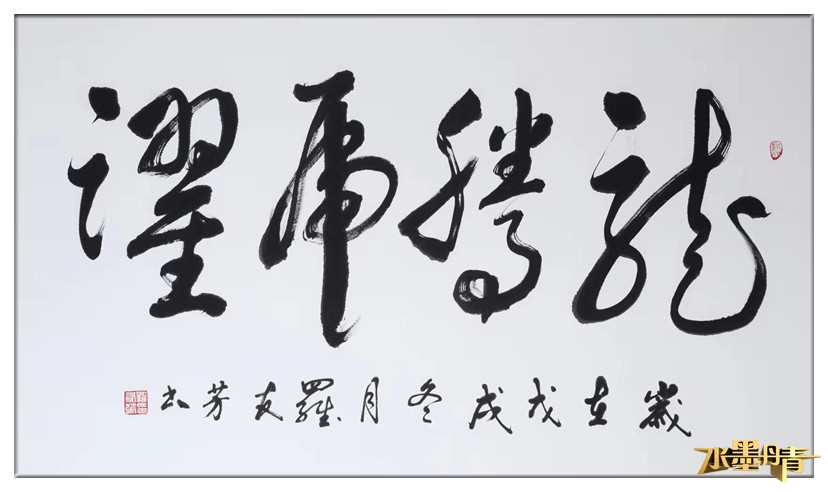 龍騰虎躍
歲在戊戌冬月羅友芳书
水墨丹青